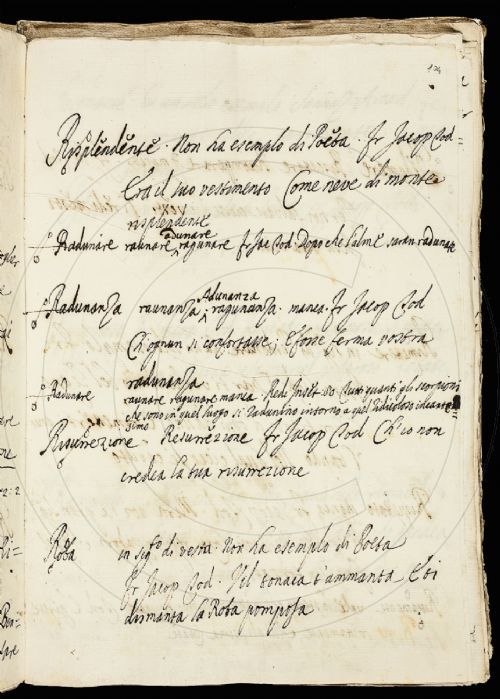 124
Risplendente. Non ha esemplo di Poeta. Fr Jacop Cod
Era il suo vestimento Come neve di monte
risplendente
adunare
Radunare raunare ragunare Fr Jac Cod. Dopo che l'alme saran radunate
Adunanza
Radunanza raunanza ragunanza. manca. Fr Jacop Cod
Ch'ognun si confortasse; E fosse ferma vostra
radunanza
Radunare raunare ragunare manca. Redi Inset. 80. Tutti quanti gli scorpioni
che sono in quel luogo si radunino intorno a quel ridicoloso
simo
Risurrezione. Resurrezione Fr Jacop Cod Ch'io non
credea la tua risurrezione
Roba in sig.to di vesta. Non ha esemplo di Poeta
Fr Jacop Cod. Vil tonaca t'ammanta E ti
dismanta la Roba pomposa